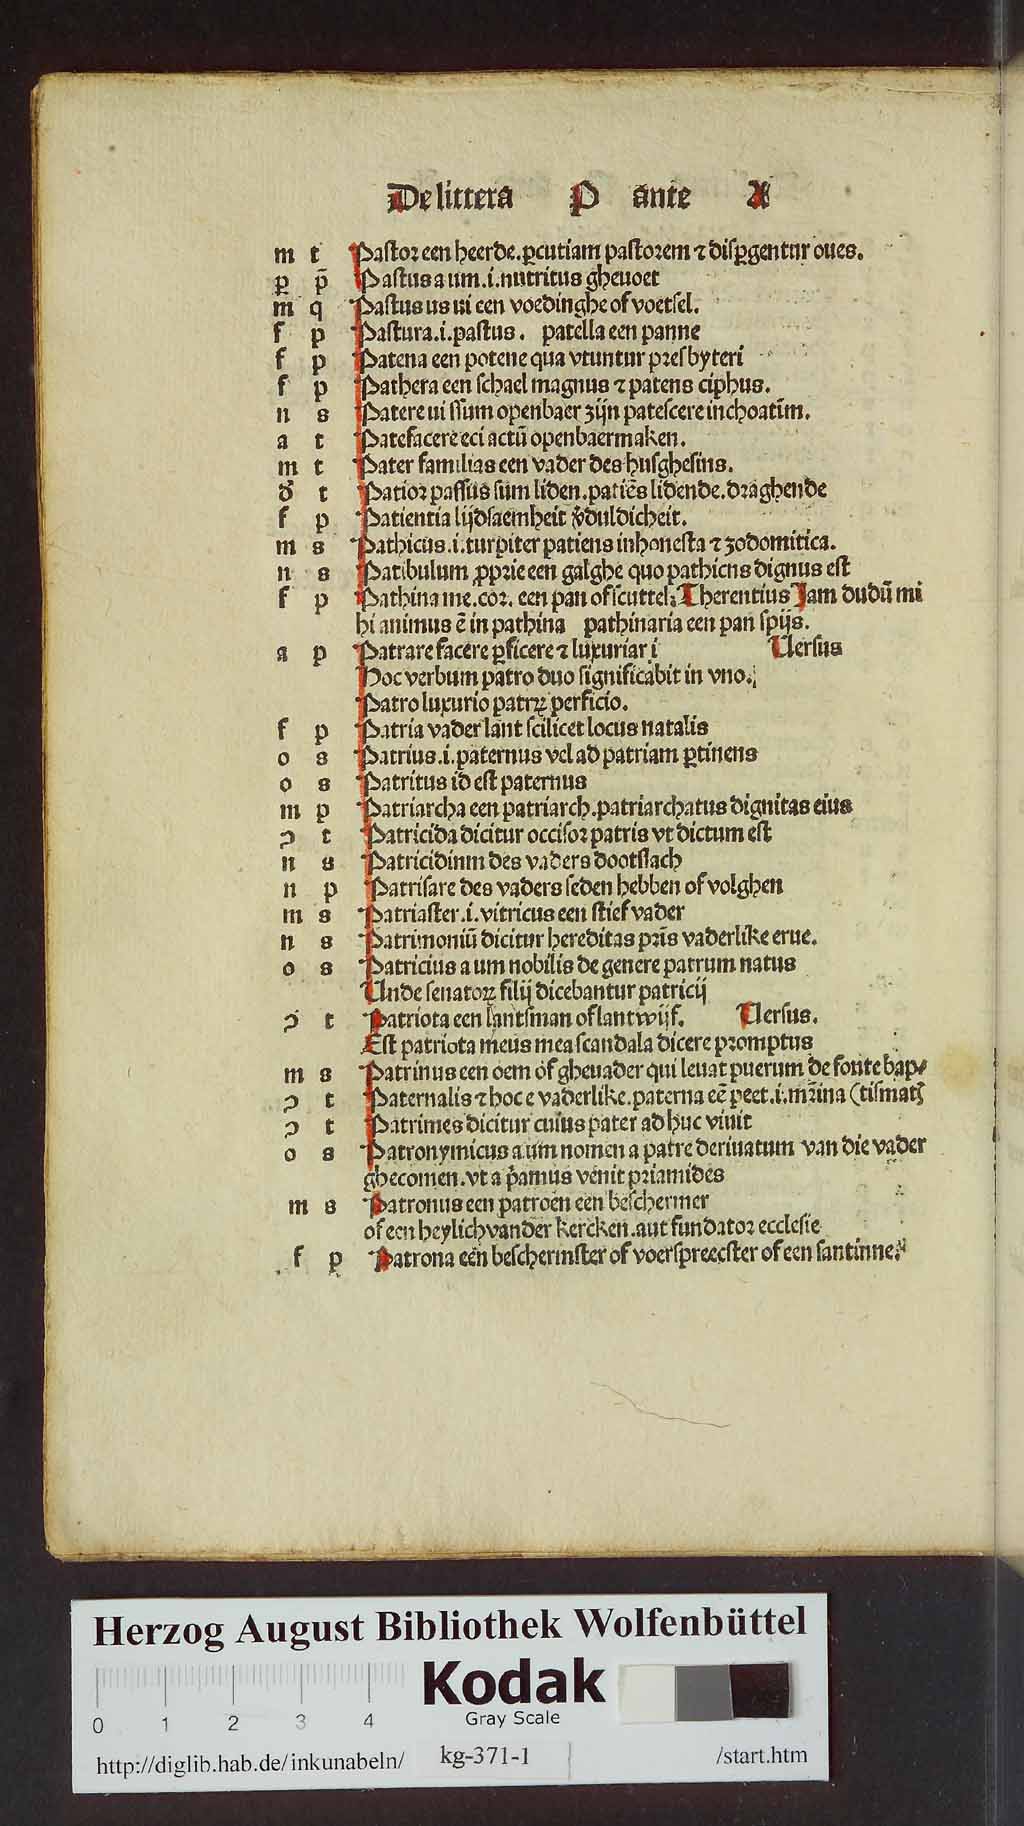 De littera P ante A
m t Pastor een heerde. ꝑcutiam pastorem ⁊ disꝑgentur oues.
p p̄ Pastus a um .i. nutritus gheuoet
m q Pastus us ui een voedinghe of voetsel.
f p Pastura .i. pastus. patella een panne
f p Patena een potene qua vtuntur presbyteri
f p Pathera een schael magnus ⁊ patens ciphus.
n s Patere ui ssum openbaer zijn patescere inchoatiū.
a t Patefacere eci actū openbaermaken.
m t Pater familias een vader des husghesins.
đ t Patior passus sum liden. patiēs lidende. draghende
f p Patientia lijdsaemheit v̄duldicheit.
m s Pathicus .i. turpiter patiens inhonesta ⁊ zodomitica.
n s Patibulum ꝓprie een galghe quo pathicus dignus est
f p Pathina me. cor. een pan of scuttel. Therentius Jam dudū mi
hi animus ē in pathina pathinaria een pan spijs.
a p Patrare facere ꝑficere ⁊ luxuriari Uersus
Hoc verbum patro duo significabit in vno.
Patro luxurio patrꝫ perficio.
f p Patria vader lant scilicet locus natalis
o s Patrius .i. paternus vel ad patriam ꝑtinens
o s Patritus id est paternus
m p Patriarcha een patriarch. patriarchatus dignitas eius
ɔ t Patricida dicitur occisor patris vt dictum est
n s Patricidinm des vaders dootslach
n p Patrisare des vaders seden hebben of volghen
m s Patriaster .i. vitricus een stief vader
n s Patrimoniū dicitur hereditas pr̄is vaderlike erue.
o s Patricius a um nobilis de genere patrum natus
Unde senatoꝝ filij dicebantur patricij
ɔ t Patriota een lantsman of lantwijf. Uersus.
Est patriota meus mea scandala dicere promptus
m s Patrinus een oem of gheuader qui leuat puerum de fonte bap
ɔ t Paternalis ⁊ hoc e vaderlike. paterna eē peet .i. mr̄ina (tismatꝭ
ɔ t Patrimes dicitur cuius pater ad huc viuit
o s Patronymicus a um nomen a patre deriuatum van die vader
ghecomen. vt a p̄amus venit priamides
m s Patronus een patroen een beschermer
of een heylich vander kercken. aut fundator ecclesie
f p Patrona een beschermster of voerspreecster of een santinne.
Herzog August Bibliothek Wolfenbüttel
Kodak
Gray Scale
0 1 2 3 4
http://diglib.hab.de/inkunabeln/ kg-371-1 /start.htm